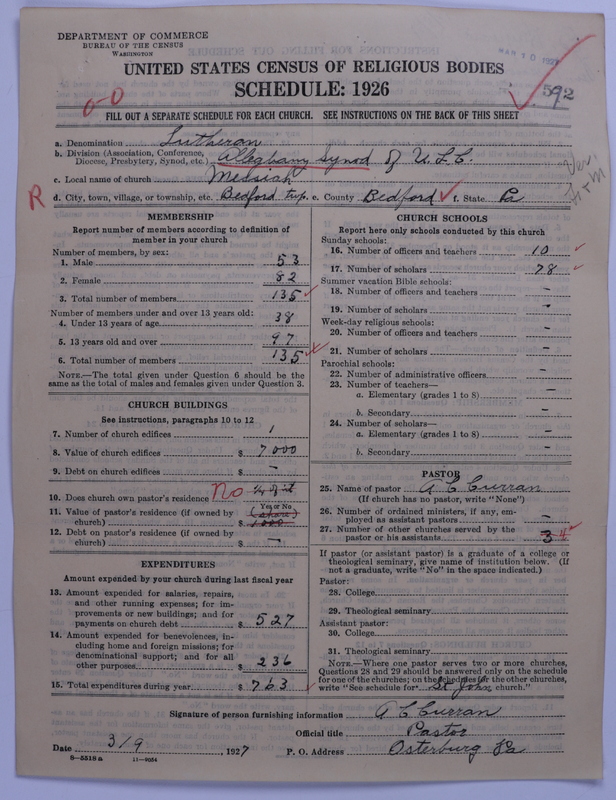 DEPARTMENT OF COMMERCE
BUREAU OF THE CENSUS
WASHINGTON
UNITED STATES CENSUS OF RELIGIOUS BODIES
SCHEDULE: 1926
592
0-0
FILL OUT A SEPARATE SCHEDULE FOR EACH CHURCH. SEE INSTRUCTIONS ON THE BACK OF THIS SHEET
a. Denomination Lutheran
b. Division (Association, Conference, Diocese, Presbytery, Synod, etc.) Alleghany Synod of U.L.C.
c. Local name of church Messiah
R d. City, town, village, or township, etc. Bedford twp. e. County Bedford f. State Pa
MEMBERSHIP
Report number of members according to definition of
member in your church
Number of members, by sex:
1. Male 53
2. Female 82
3. Total number of members 135
Number of members under and over 13 years old:
4. Under 13 years of age 38
5. 13 years old and over 97
6. Total number of members 135
NOTE.—The total given under Question 6 should be
same as the total of males and females given under Question 3.
CHURCH BUILDINGS
See instructions, paragraphs 10 to 12
7. Number of church edifices 1
8. Value of church edifices $ 7000
9. Debt on church edifices $ –
10. Does church own pastor's residence No
Yes or No
11. Value of pastor's residence (if owned by
church) $ 1000
12. Debt on pastor's residence (if owned by
church) $ –
EXPENDITURES
Amount expended by your church during last fiscal year
13. Amount expended for salaries, repairs,
and other running expenses; for im-
provements or new buildings; and for
payments on church debt $ 527
14. Amount expended for benevolences, in-
cluding home and foreign missions; for
denominational support; and for all
other purposes $ 236
15. Total expenditures during year $ 763
CHURCH SCHOOLS
Report here only schools conducted by this church
Sunday schools:
16. Number of officers and teachers 10
17. Number of scholars 78
Summer vacation Bible schools:
18. Number of officers and teachers –
19. Number of scholars –
Week-day religious schools:
20. Number of officers and teachers –
21. Number of scholars –
Parochial schools:
22. Number of administrative officers –
23. Number of teachers—
a. Elementary (grades 1 to 8) –
b. Secondary –
24. Number of scholars—
a. Elementary (grades 1 to 8) –
b. Secondary –
PASTOR
25. Name of pastor A C Curran
(If church has no pastor, write "None")
26. Number of ordained ministers, if any, em-
ployed as assistant pastors –
27. Number of other churches served by the
pastor or his assistants 3
If pastor (or assistant pastor) is a graduate of a college or
theological seminary, give name of institution below. (If
not a graduate, write "No" in the space indicated.)
Pastor:
28. College
29. Theological seminary
Assistant pastor:
30. College
31. Theological seminary
NOTE.—Where one pastor serves two or more churches,
Questions 28 and 29 should be answered only on the schedule
for one of the churches; on the schedules for the other churches,
write "See schedule for St John church."
Signature of person furnishing information A C Curran
Official title Pastor
Date 3/9 1927 P. O. Address Osterburg Pa
8—5518a 11—9064